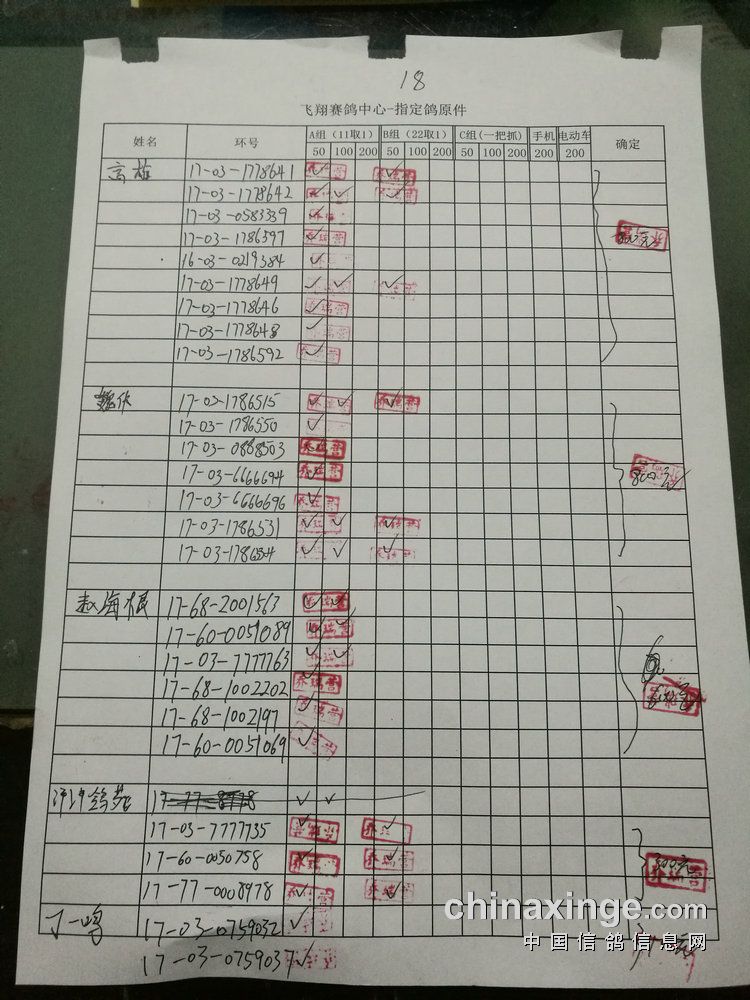 18
飞翔赛鸽中心-指定鸽原件
姓名 环号 A组（11取1） B组（22取1） C组(一把抓) 手机 电动车 确定
50 100 200 50 100 200 50 100 200 200 200
17-03-1778641 ✓ ✓
17-03-1778642 ✓ ✓ ✓
17-03-0583339 ✓
17-03-1786597 ✓
16-03-0219384 ✓
17-03-1778649 ✓ ✓ ✓
17-03-1778646 ✓
17-03-1778648 ✓
17-03-1786592 ✓
17-03-1786515 ✓ ✓ ✓
17-03-1786550 ✓
17-03-0888503 乔瑞营
17-03-6666694 ✓ 800元
17-03-6666696 ✓
17-03-1786531 ✓ ✓ ✓
海根 17-68-2001563
17-60-0051089 ✓ ✓
17-03-7777763 ✓ ✓
17-68-1002202 乔瑞营
17-68-1002197 ✓
17-60-0051069 ✓
✓ ✓
17-03-7777735 ✓ ✓
17-60-0050758 ✓ ✓
17-77-0008978 ✓ ✓
丁一鸣 17-03-0759032 ✓
17-03-0759037 ✓
chinaxinge.com
中国信鸽信息网